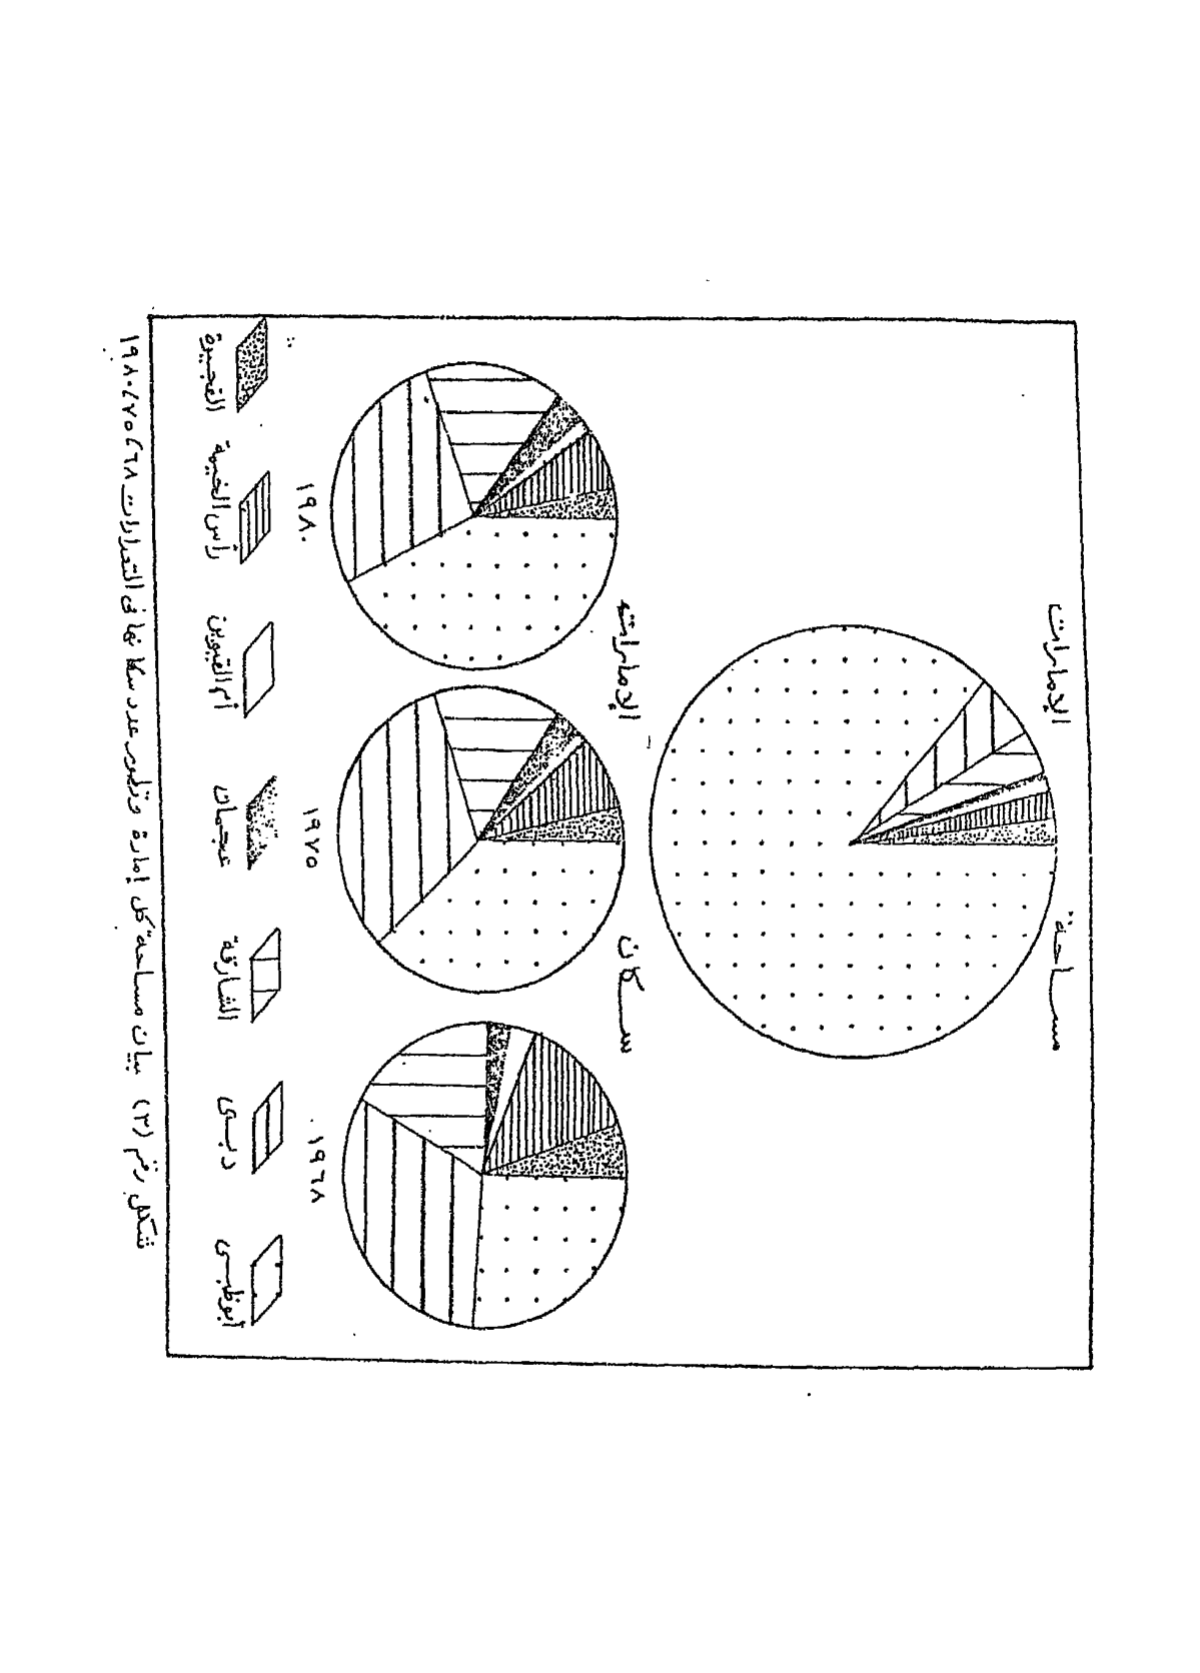 مساحة الإمارات
سكان الإمارات
١٩٦٨ ١٩٧٥ ١٩٨٠
أبوظبى دبى الشارقة عجمان أم القيوين رأس الخيمة الفجيرة
شكل رقم (٣) بيان مساحة كل إمارة وتطور عدد سكانها فى التعدادات ٦٨، ٧٥، ١٩٨٠